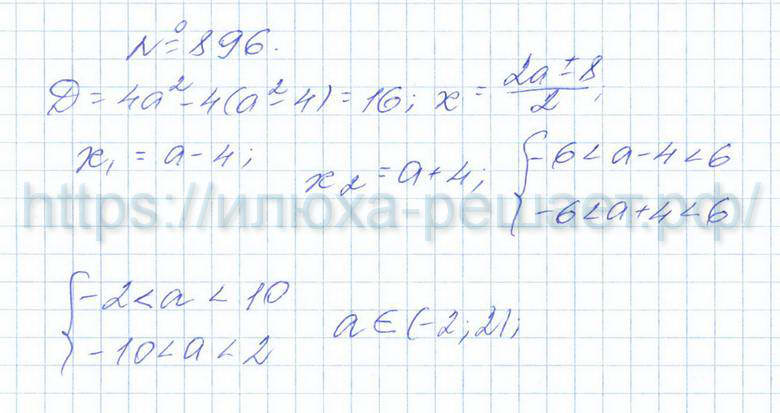 № 896.
D = 4a² - 4(a² - 4) = 16; x = (2a ± 8)/2;
x₁ = a - 4; x₂ = a + 4; { -6 < a - 4 < 6
-6 < a + 4 < 6
https://илюха-решает.рф/
{ -2 < a < 10
-10 < a < 2
a ∈ (-2; 2);